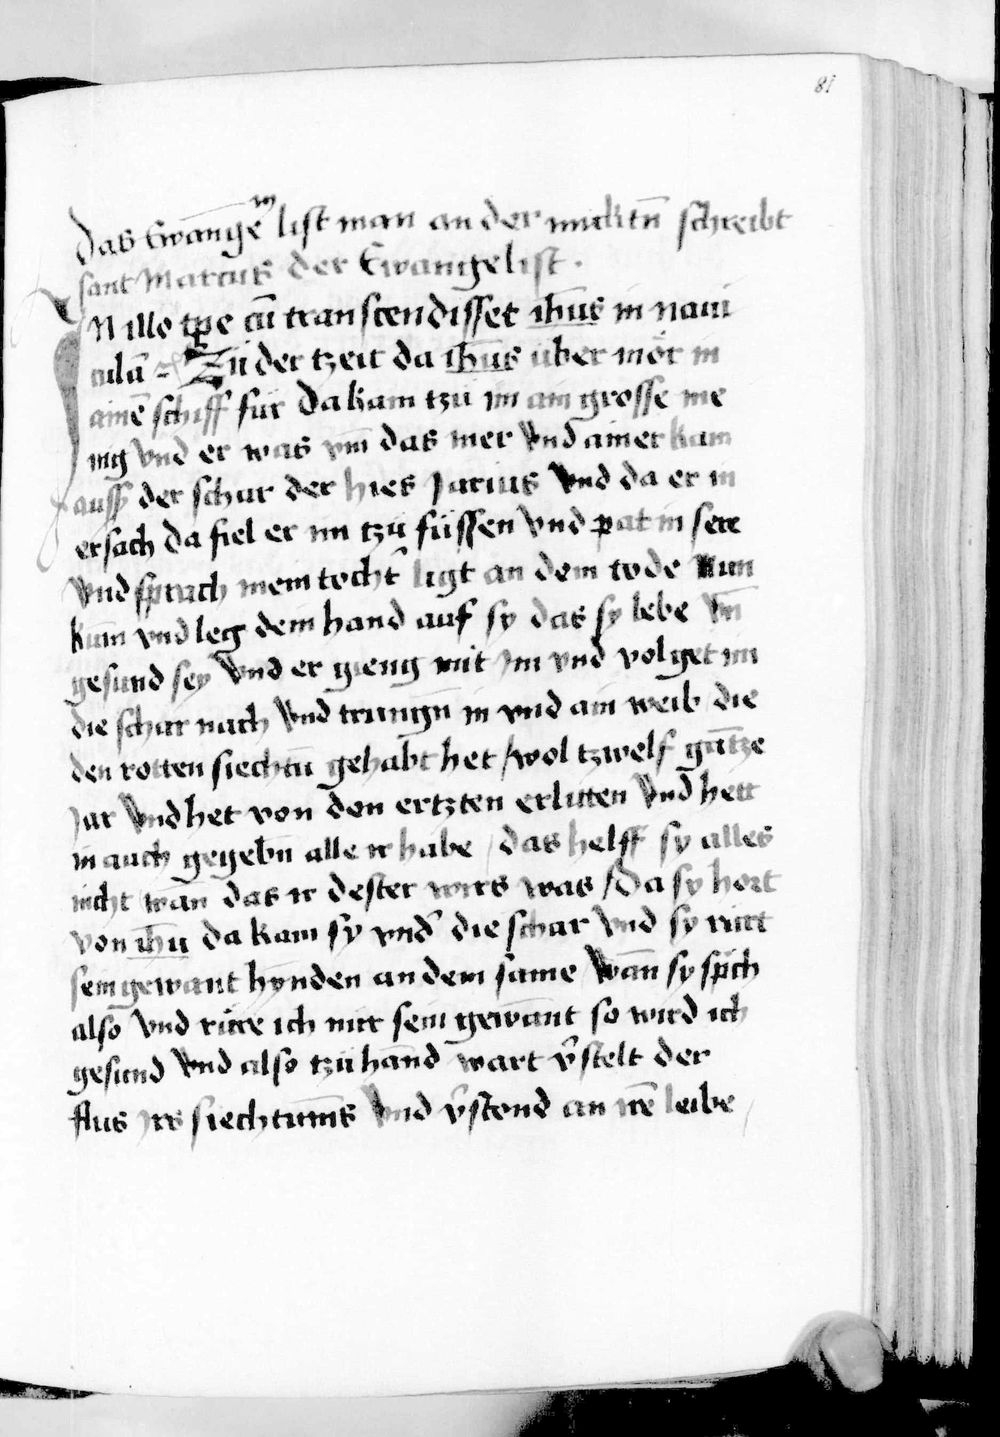 81
Das Ewangeᷠ list man an der mitktn̄ schreibt
sant Marcus der Ewangelist .
IN illo tp̄e cū transcendisset ih̄us in naui
culā Zů der tzeit da ih̄us über mör in
ainē schiff für Da kam tzů im ain grosse me
nig vnd er was vm̄ das mer Vnd ainer kam
auss der schar der hies Jarius Vnd da er in
ersach da fiel er im tzů füssen Vnd pat in sere
Vnd sprach mein tocht̾ ligt an dem tode Nun
kum vnd leg dein hand auf sy das sy lebe Vn̄
gesund sey Vnd er gieng mit jm vnd volget im
die schar nach Vnd trungn̄ in vnd ain weib die
den rotten siechtū gehabt het / wol tzwelf gantze
jar Vnd het von den ertzten erlitten Vnd hett
in auch gegebn̄ alle ir habe / das helff sy alles
nicht wan das ir dester wirs was / Da sy hort
von ih̄u da kam sy vnd̾ die schar Vnd sy rürt
sein gewant hynden an dem same Wan sy sp̄ch
also Vnd rüre ich nur sein gewant so wird ich
gesund Vnd also tzůhand wart v̾stelt der
flus jrs siechtums Vnd v̾stond an irē leibe /